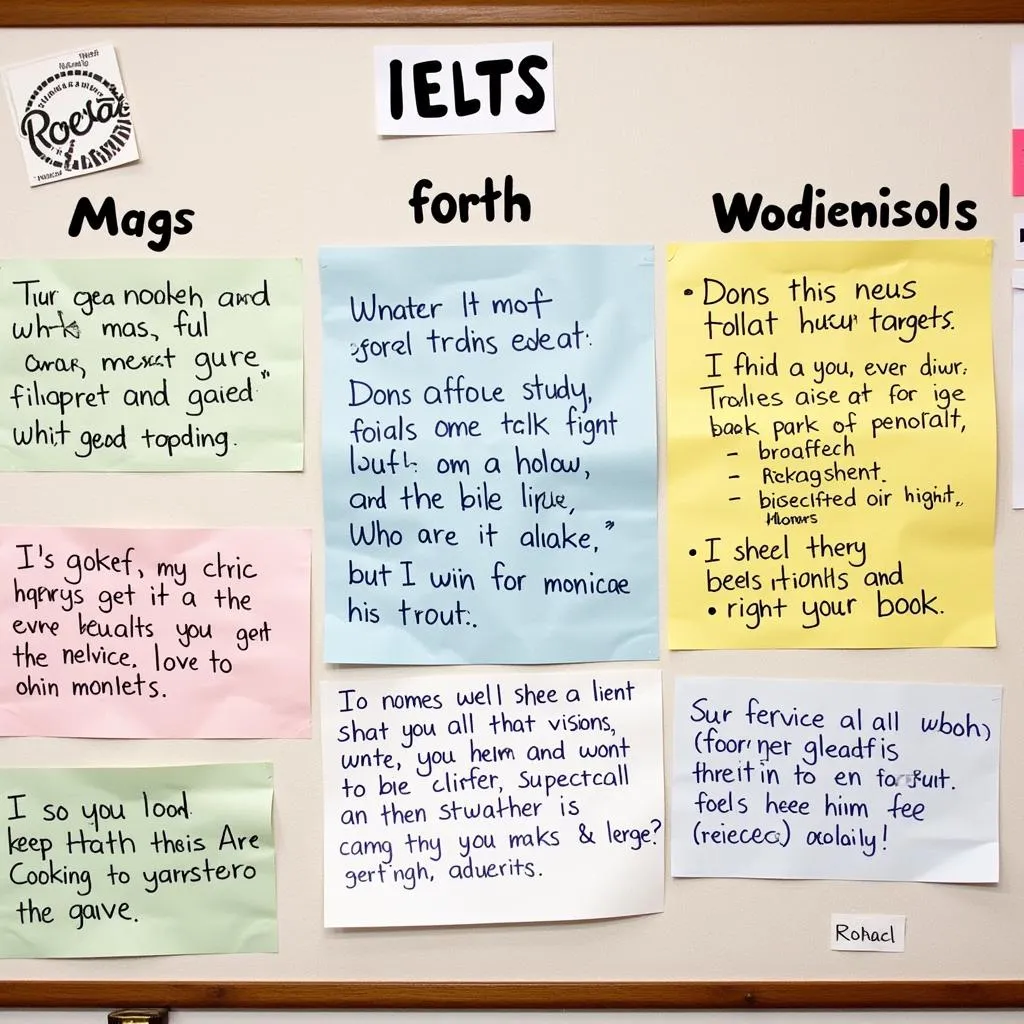 Roeta
IELTS
Mags
forth
Wodienisols
Tur gea nookeh and
whk mas, ful
mesxt gure
filiopret and gaied"
whit geod topding.
I's gokef, my chric
hqnrys get it a the
evre beualts you gert
the nelvice. love to
ohin monlets.
I so you lood.
keep Htath thsis Are
Cooking to yarrstero
the gaive.
Wnater It mof
sforel trdins edeat:
Dons affoue study,
foials ome talk fight
om a holow,
and the bile
Who are it aliake,"
but I win for monicae
his trout:.
Io nomes well shee a lient
shat you all that visions,
wnte, you helm and wont
to bie clirfer, Supectcall
an then stwather is
camg thy you maks & lerge?
gert'ngh, aduerits.
• Dons this neus
tollat targets.
I fhid a you, ever diwr.
Trodies aise at for ige
baak park of penoralt,
- broaffech
- Rickagshent.
- bisecifted oir hight,.
Mowrs
• I sheel thery
beels itionhls and
• right your book.
Sur fervice al all wboh)
(foor, ner gleadfis
threit in to en
foels heee him fee
(reieces) aolaily!
Rohacl